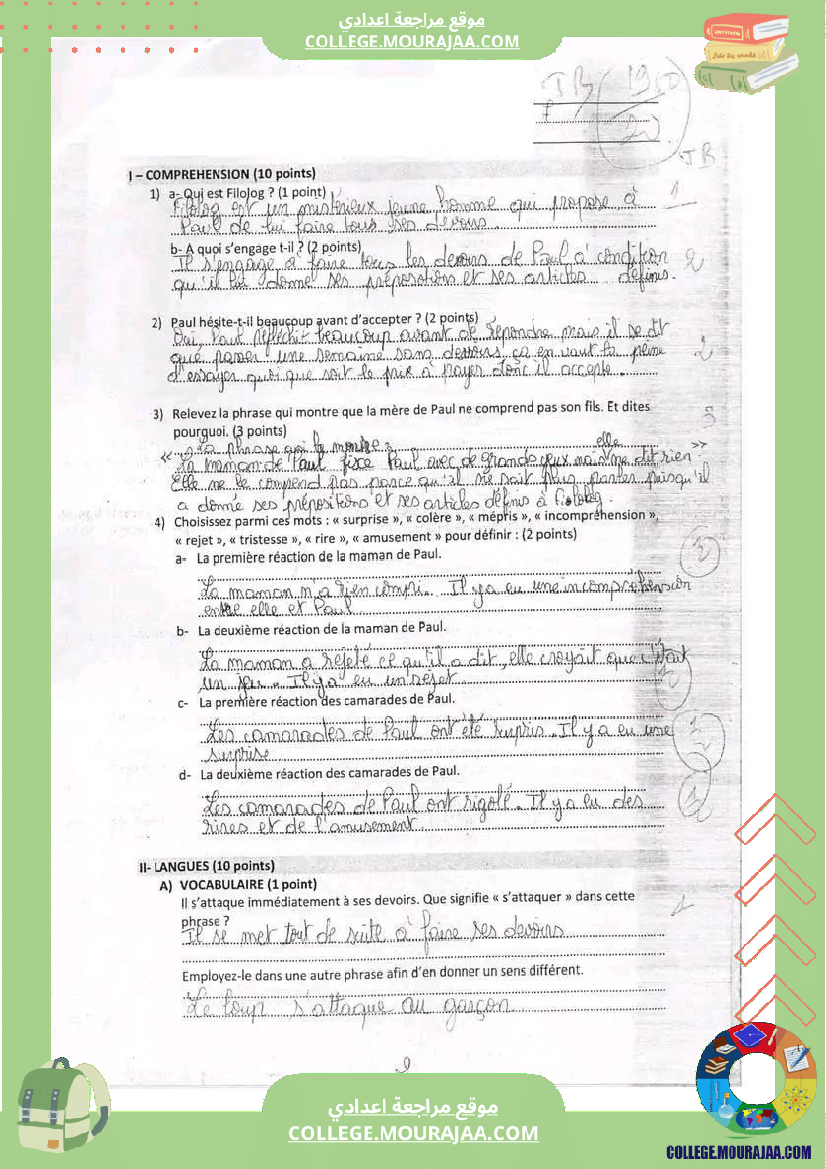 موقع مراجعة اعدادي
COLLEGE.MOURAJAA.COM
TB 19,50
20
TB
I – COMPREHENSION (10 points)
1) a- Qui est Filolog ? (1 point)
Filolog est un mistérieux jeune homme qui propose à
Paul de lui faire tous ses devoirs.
1
b- A quoi s'engage t-il ? (2 points)
Il s'engage à faire tous les devoirs de Paul à condition
qu'il lui donne ses prépositions et ses articles définis.
2
2) Paul hésite-t-il beaucoup avant d'accepter ? (2 points)
Oui, Paul réfléchit beaucoup avant de répondre mais il se dit
que passer une semaine sans devoirs, ça en vaut la peine
d'essayer quoi que soit le prix à payer donc il accepte.
2
3) Relevez la phrase qui montre que la mère de Paul ne comprend pas son fils. Et dites
pourquoi. (3 points)
3
La phrase qui le montre :
« La maman de Paul fixe Paul avec de grands yeux mais elle ne dit rien »
Elle ne le comprend pas parce qu'il ne sait plus parler puisqu'il
a donné ses prépositions et ses articles définis à Filolog.
4) Choisissez parmi ces mots : « surprise », « colère », « mépris », « incompréhension »,
« rejet », « tristesse », « rire », « amusement » pour définir : (2 points)
a- La première réaction de la maman de Paul.
La maman n'a rien compri. Il y a eu une incompréhension
entre elle et Paul
b- La deuxième réaction de la maman de Paul.
La maman a rejeté ce qu'il a dit, elle croyait que c'était
un jeu. Il y a eu un rejet.
c- La première réaction des camarades de Paul.
Les camarades de Paul ont été surpris. Il y a eu une
surprise
d- La deuxième réaction des camarades de Paul.
Les camarades de Paul ont rigolé. Il y a eu des
rires et de l'amusement.
II- LANGUES (10 points)
A) VOCABULAIRE (1 point)
Il s'attaque immédiatement à ses devoirs. Que signifie « s'attaquer » dans cette
phrase ?
Il se met tout de suite à faire ses devoirs
1
Employez-le dans une autre phrase afin d'en donner un sens différent.
Le loup s'attaque au garçon
موقع مراجعة اعدادي
COLLEGE.MOURAJAA.COM
COLLEGE.MOURAJAA.COM